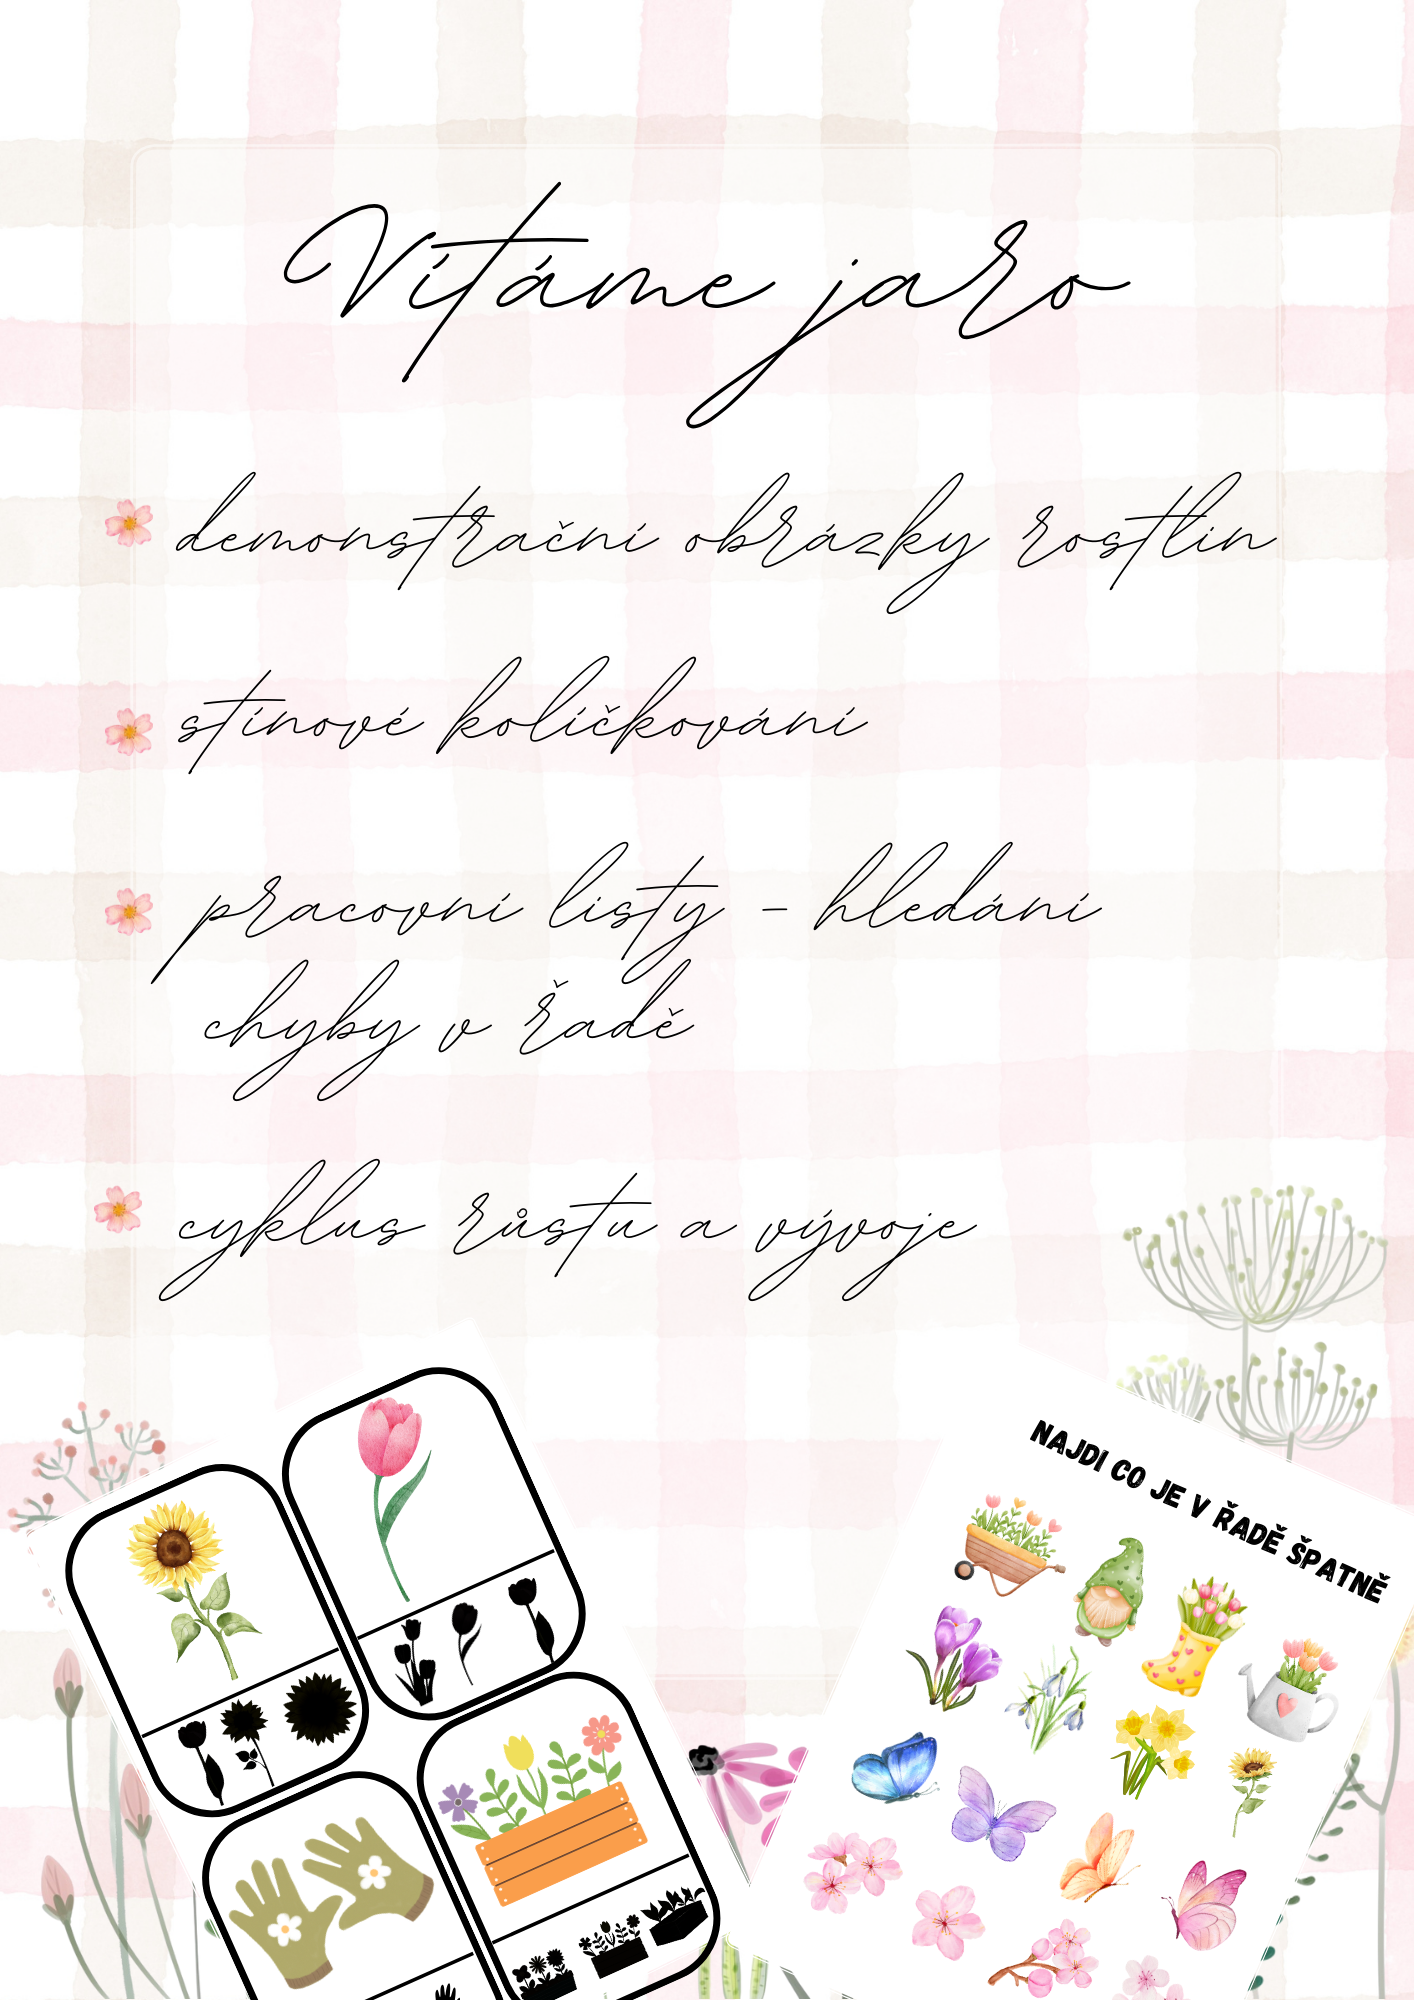 Vítáme jaro
demonstrační obrázky rostlin
stínové kolíčkování
pracovní listy - hledání
chyby v řadě
cyklus růstu a vývoje
NAJDI CO JE V ŘADĚ ŠPATNĚ